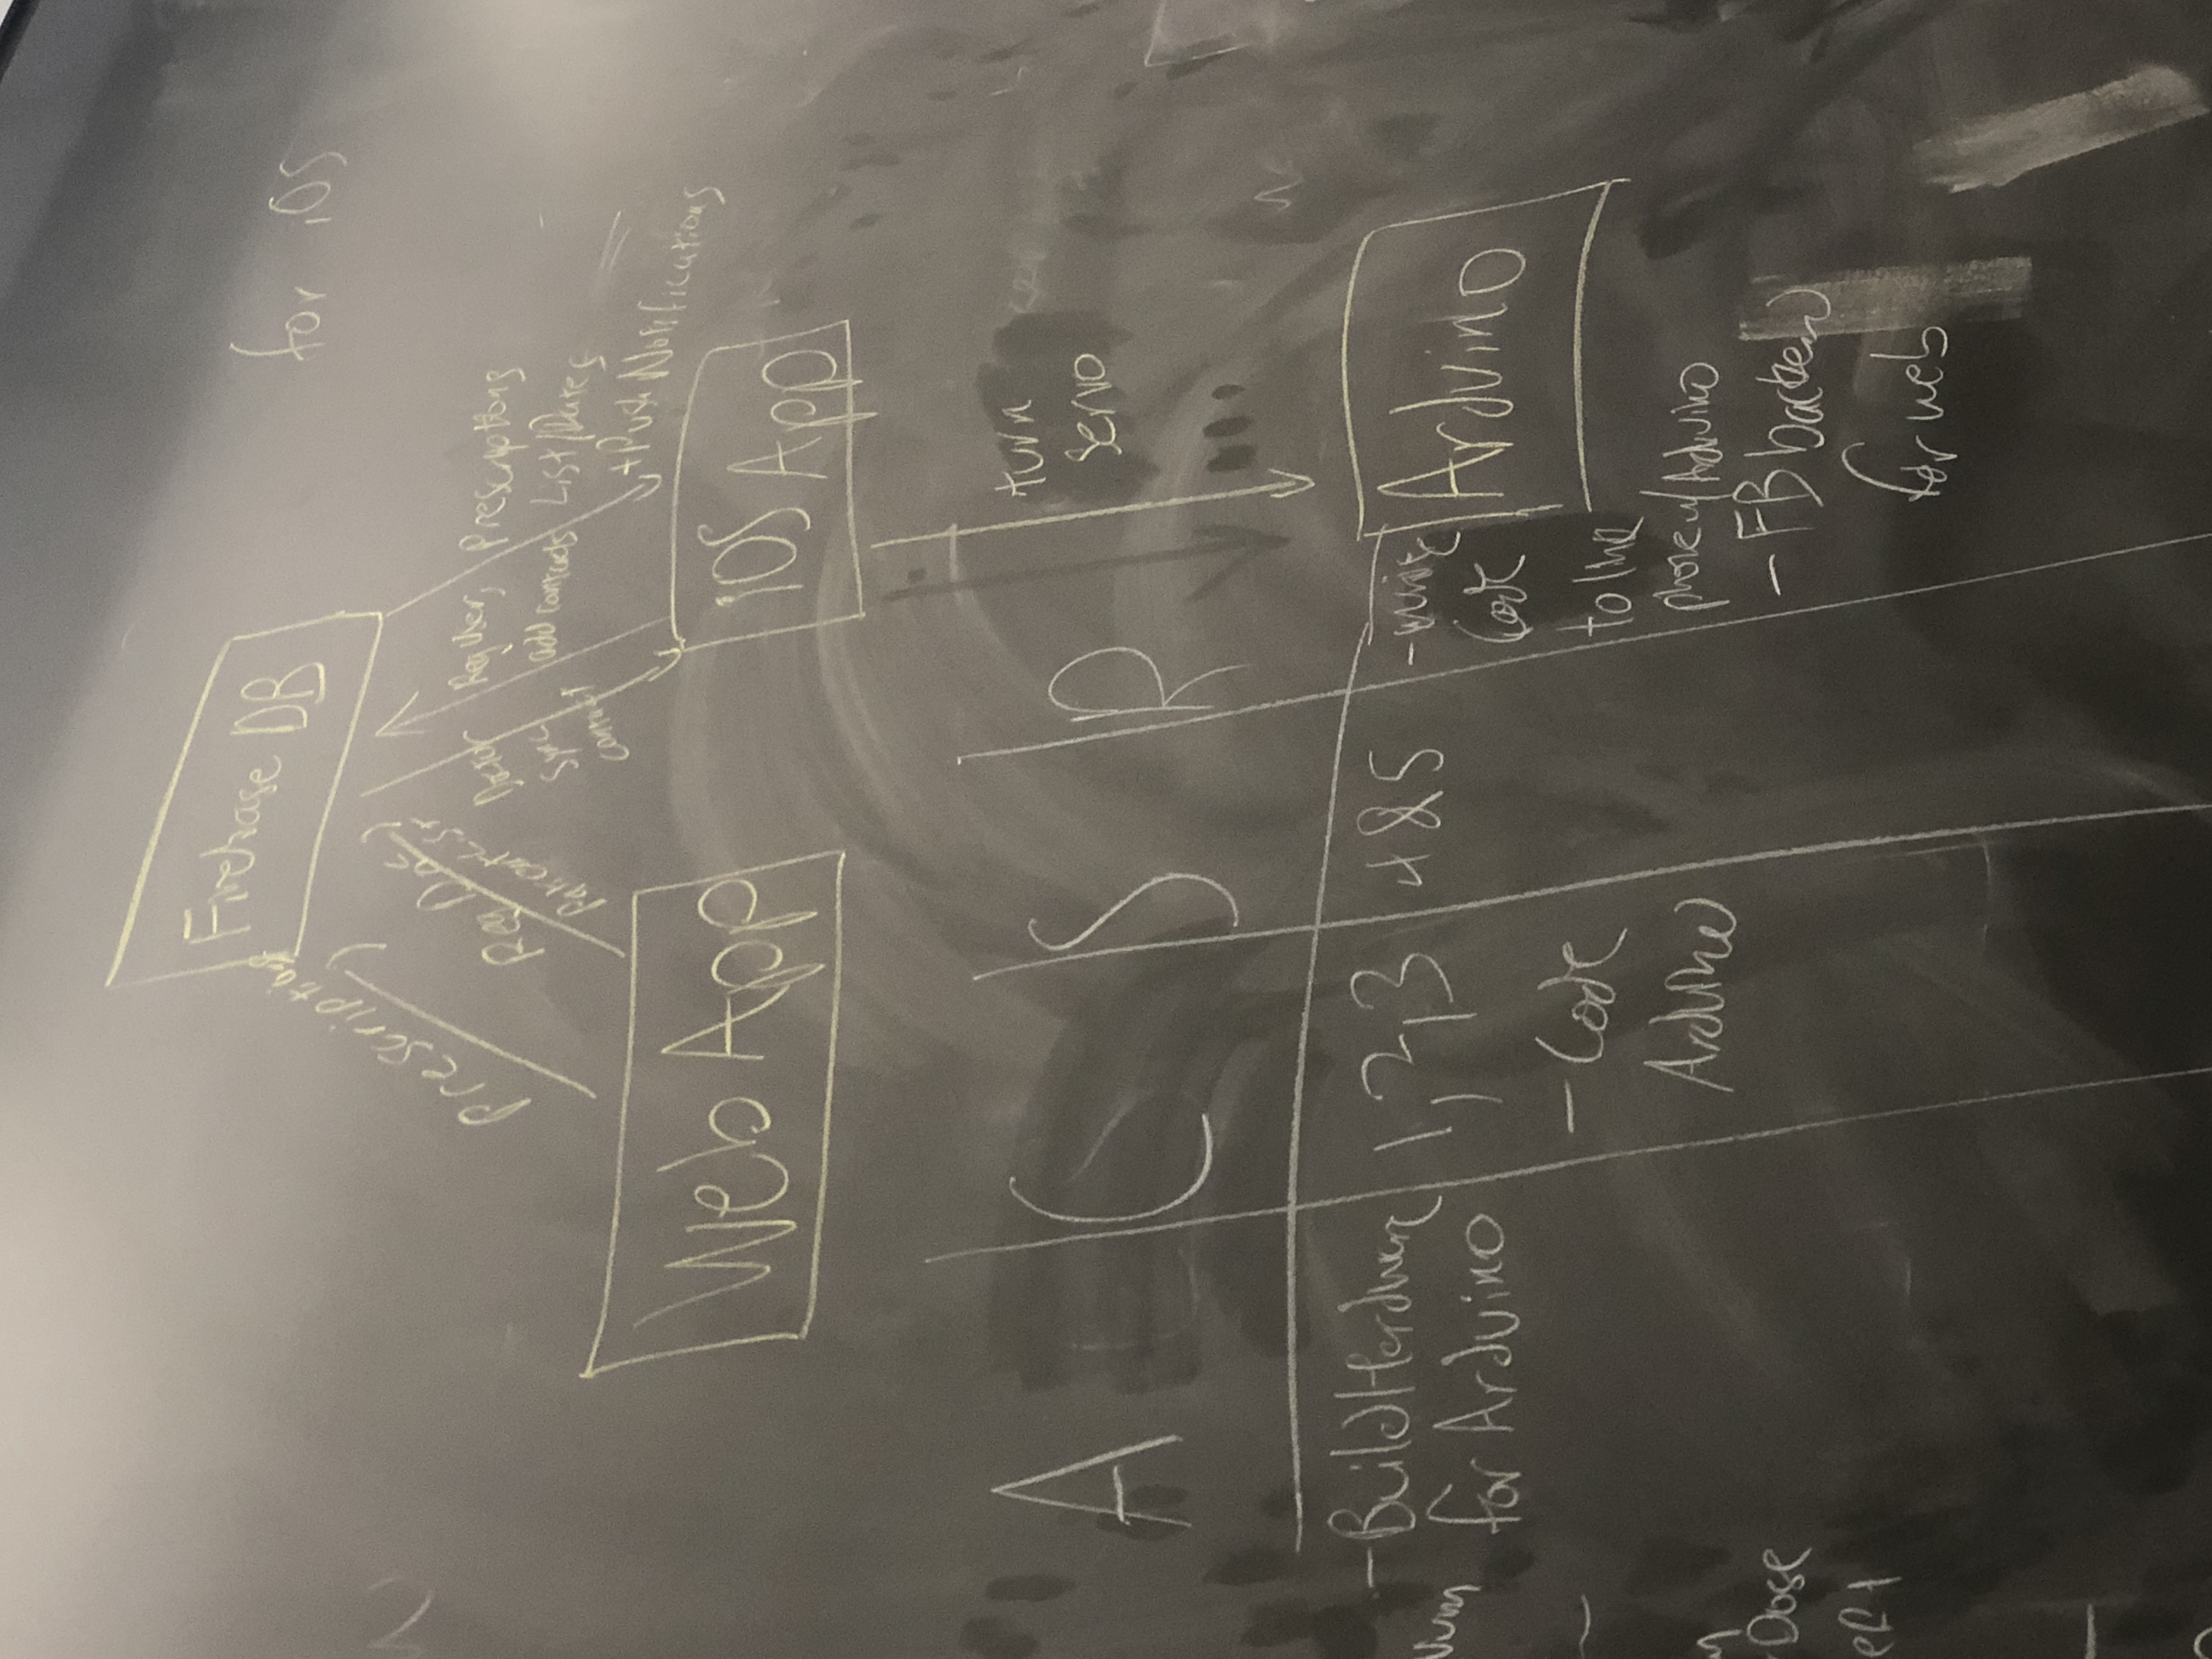 for iOS
Firebase DB
Prescription
Read Pay
Patient List
Register, Prescriptions
add comments List/Dates
+Push Notifications
Doctor
sync
Web App
iOS App
turn
servo
Arduino
A C S R
-Build Hardware
for Arduino
1,2,3
-Code
Arduino
4&5
-write
code
to link
phone/Arduino
-FB backend
for web
Dose